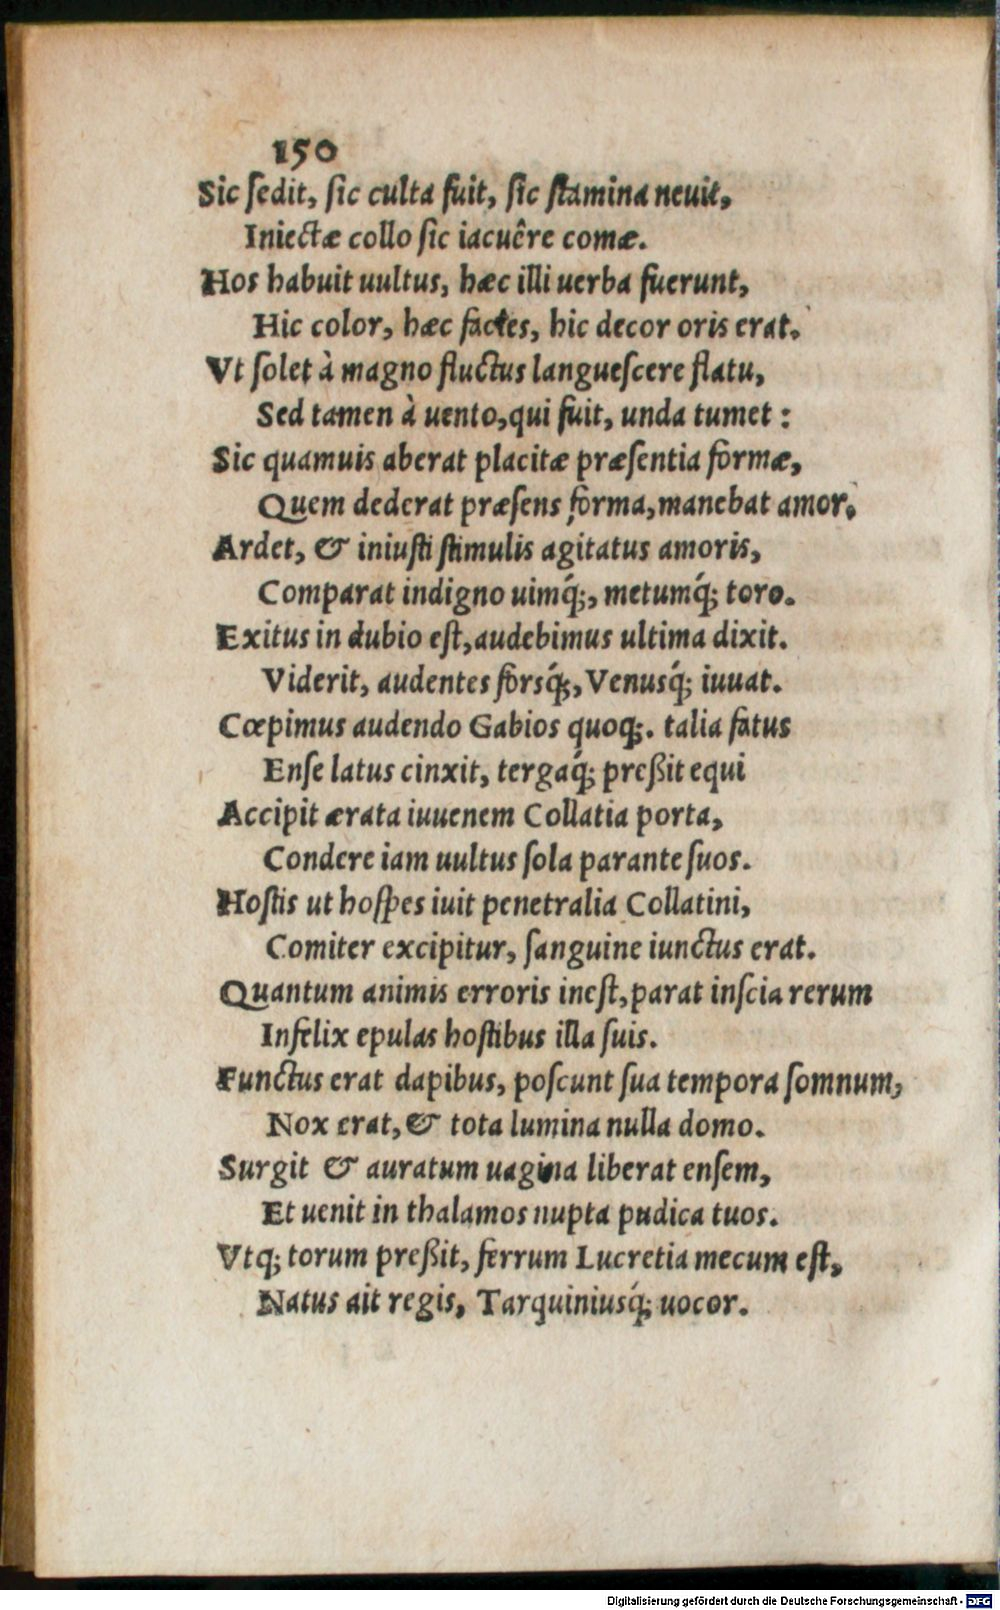 150
Sic sedit, sic culta fuit, sic stamina neuit,
Iniectæ collo sic iacuêre comæ.
Hos habuit uultus, hæc illi uerba fuerunt,
Hic color, hæc facies, hic decor oris erat.
Vt solet à magno fluctus languescere flatu,
Sed tamen à uento, qui fuit, unda tumet:
Sic quamuis aberat placitæ præsentia formæ,
Quem dederat præsens forma, manebat amor.
Ardet, & iniusti stimulis agitatus amoris,
Comparat indigno uimq́;, metumq́; toro.
Exitus in dubio est, audebimus ultima dixit.
Viderit, audentes forsq́;, Venusq́; iuuat.
Cœpimus audendo Gabios quoq;. talia fatus
Ense latus cinxit, tergaq́; preßit equi
Accipit ærata iuuenem Collatia porta,
Condere iam uultus sola parante suos.
Hostis ut hospes iuit penetralia Collatini,
Comiter excipitur, sanguine iunctus erat.
Quantum animis erroris inest, parat inscia rerum
Infelix epulas hostibus illa suis.
Functus erat dapibus, poscunt sua tempora somnum,
Nox erat, & tota lumina nulla domo.
Surgit & auratum uagina liberat ensem,
Et uenit in thalamos nupta pudica tuos.
Vtq; torum preßit, ferrum Lucretia mecum est,
Natus ait regis, Tarquiniusq́; uocor.
Digitalisierung gefördert durch die Deutsche Forschungsgemeinschaft - DFG